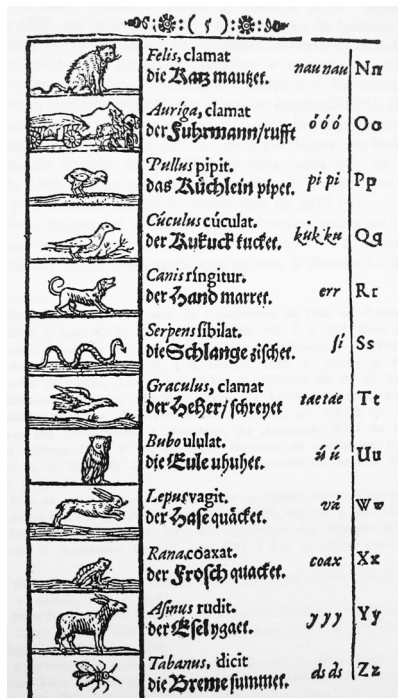 ( 5 )
Felis, clamat
die Katz mautzet. nau nau Nn
Auriga, clamat
der Fuhrmann/rufft ó ó ó Oo
Pullus pipit.
das Küchlein pipet. pi pi Pp
Cúculus cúculat.
der Kukuck kucket. kuk ku Qq
Canis ríngitur.
der Hand marret. err Rr
Serpens síbilat.
die Schlange zischet. ſi Ss
Graculus, clamat
der Heher/ ſchreyet tae tae Tt
Bubo ululat.
die Eule uhuhet. ú ú Uu
Lepus vagit.
der Haſe quäcket. vá Ww
Rana cóaxat.
der Froſch quacket. coax Xx
Aſinus rudit.
der Eſel ygaet. y y y Yy
Tabanus, dicit
die Breme ſummet. ds ds Zz